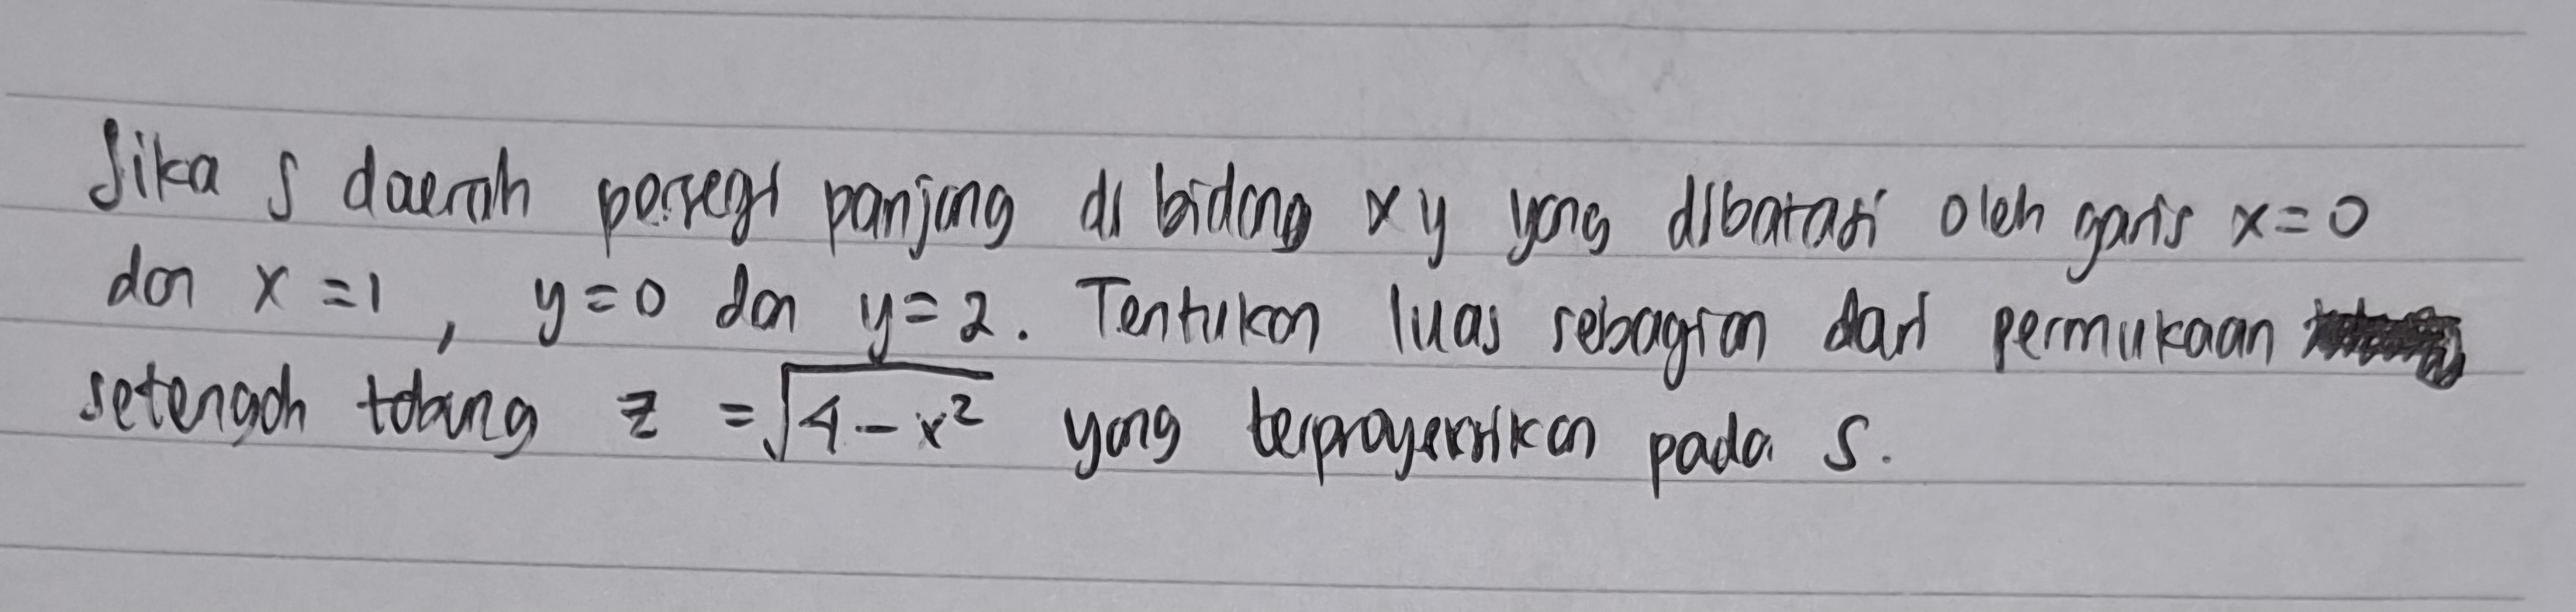 Jika S daerah persegi panjang di bidang xy yang dibatasi oleh garis x=0
dan x=1, y=0 dan y=2. Tentukan luas sebagian dari permukaan
setengah tabung z = √(4-x²) yang terproyeksikan pada S.